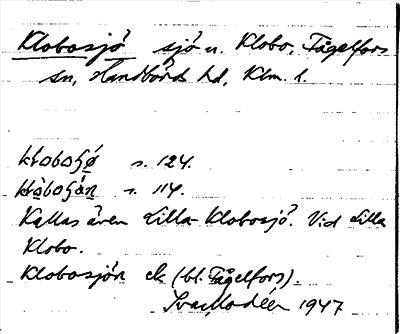 Klobosjö sjö n. Klobo, Fågelfors
sn, Handbörds hd, Klm. l.
s. 124.
s. 114.
Kallas även Lilla Klobosjö. Vid Lilla
Klobo.
Klobosjön ek (bl. Fågelfors).
Ivar Modéer 1947